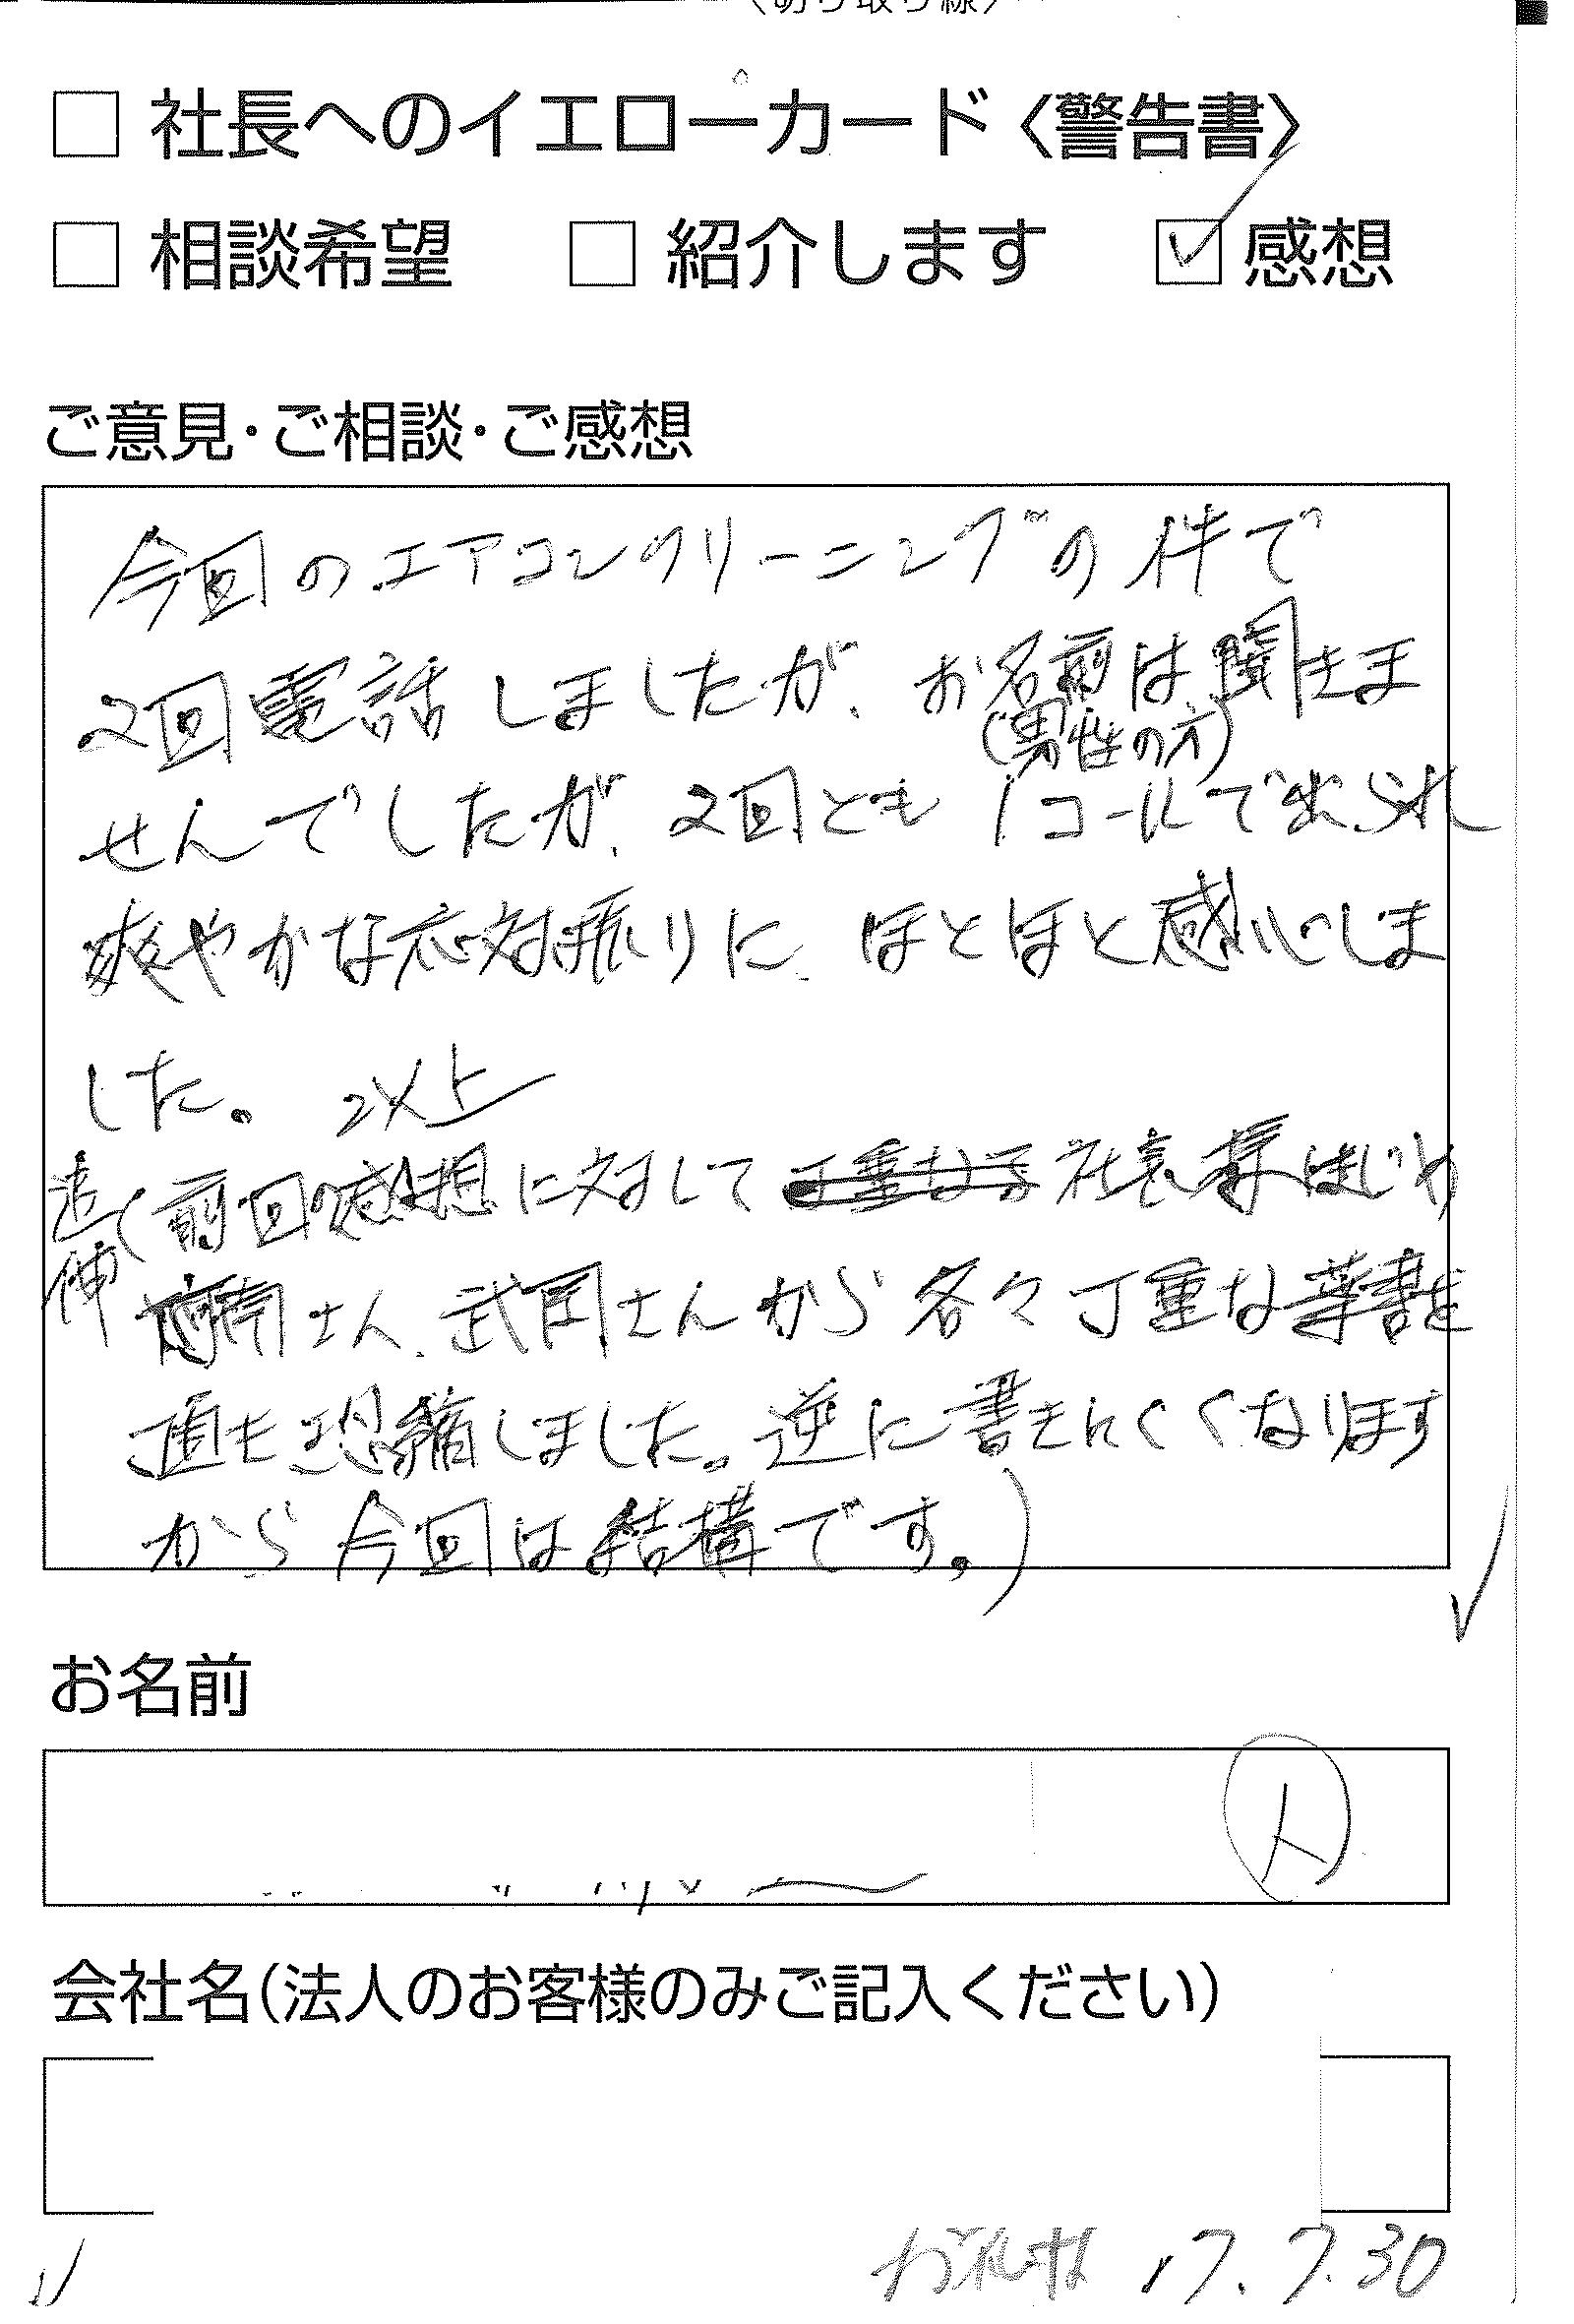 〈切り取り線〉
□ 社長へのイエローカード〈警告書〉
□ 相談希望 □ 紹介します ☑ 感想
ご意見・ご相談・ご感想
今回のエアコンクリーニングの件で
2回電話しましたが、お名前は聞きま
(男性の方)
せんでしたが、2回とも1コールで出られ
爽やかな応対振りに、ほとほと感心しま
した。 以上
追伸(前回の感想に対して丁重なる社長様はじめ
さん、武岡さんから各々丁重な葉書を
頂き恐縮しました。逆に書きにくくなります
から今回は結構です。)
お名前
人
会社名(法人のお客様のみご記入ください)
17.7.30